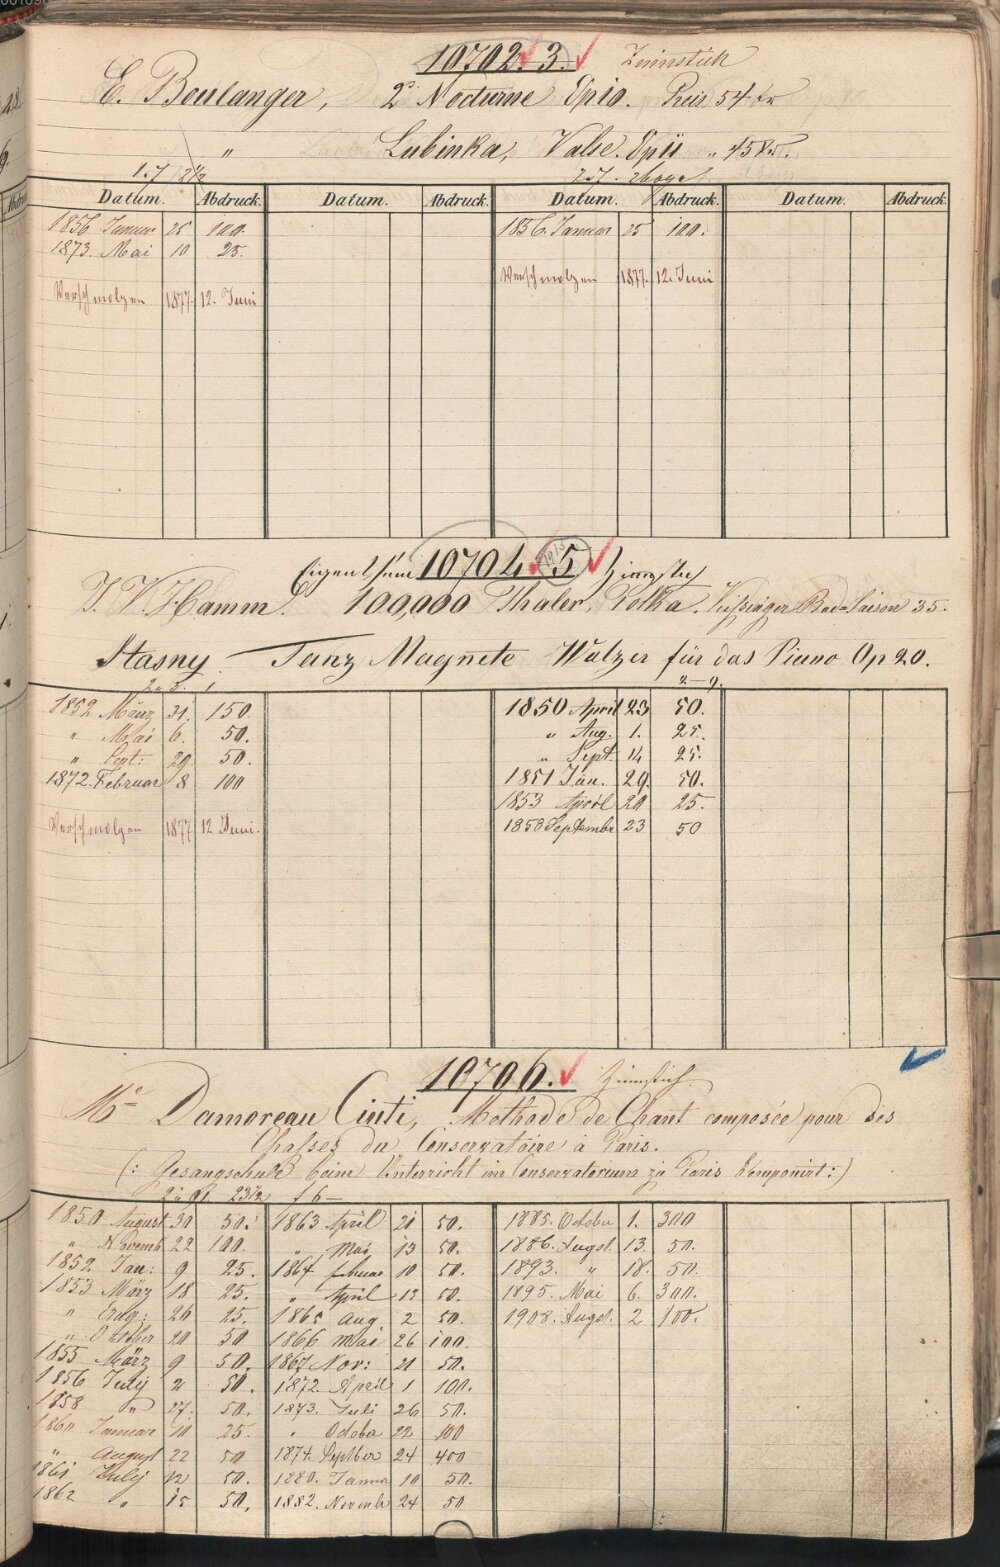 10702. 3. Zinnstich
E. Boulanger, 2e Nocturne Op10. Preis 54 xr
" Lubinka, Valse. Op11 " 45 xr.
Datum. Abdruck. Datum. Abdruck. Datum. Abdruck. Datum. Abdruck.
1856 Januar 25 100. 1856. Januar 25 100.
1873. Mai 10 25.
Verschmolzen 1877. 12. Juni
Verschmolzen 1877. 12. Juni
Eigenthum 10704. 5 Zinnstich
J. V. Hamm. 100,000 Thaler, Polka. Kissinger Bad-Saison 35.
Stasny. Tanz Magnete Walzer für das Piano Op 20.
1852 März 31. 150. 1850 April 23 50.
" Mai 6. 50. " Aug. 1. 25.
" Sept: 29 50. " Sept. 14 25.
1872. Februar 8 100 1851 Jan. 29. 50.
1853 April 20 25.
Verschmolzen 1877. 12 Juni. 1858 Septembr 23 50
10706. Zinnstich.
Me Damoreau Cinti, Methode de Chant composée pour des
Classes du Conservatoire à Paris.
(: Gesangschule beim Unterricht im Conservatorium zu Paris komponirt :)
1850 August 30 50. 1863 April 21 50. 1885. Octobr 1. 300
" Novemb 22 100. " Mai 13 50. 1886. Augst. 13. 50.
1852 Jan: 9 25. 1864 februar 10 50. 1893. " 18. 50.
1853 März 18 25. " April 13 50. 1895. Mai 6. 300.
" 26 25. 1865 Aug. 2 50. 1908. Augst. 2 100.
" October 20 50 1866 Mai 26 100.
1855 März 9 50. 1867 Nov: 21 50.
1856 July 2 50. 1872. April 1 100.
1858 " 27. 50. 1873. Juli 26 50.
1860 Januar 10 25. " Octobr 22 100
" August 22 50 1874. Septber 24 400
1861 July 12 50. 1880. Januar 10 50.
1862 " 15 50. 1882. Novembr 24 50